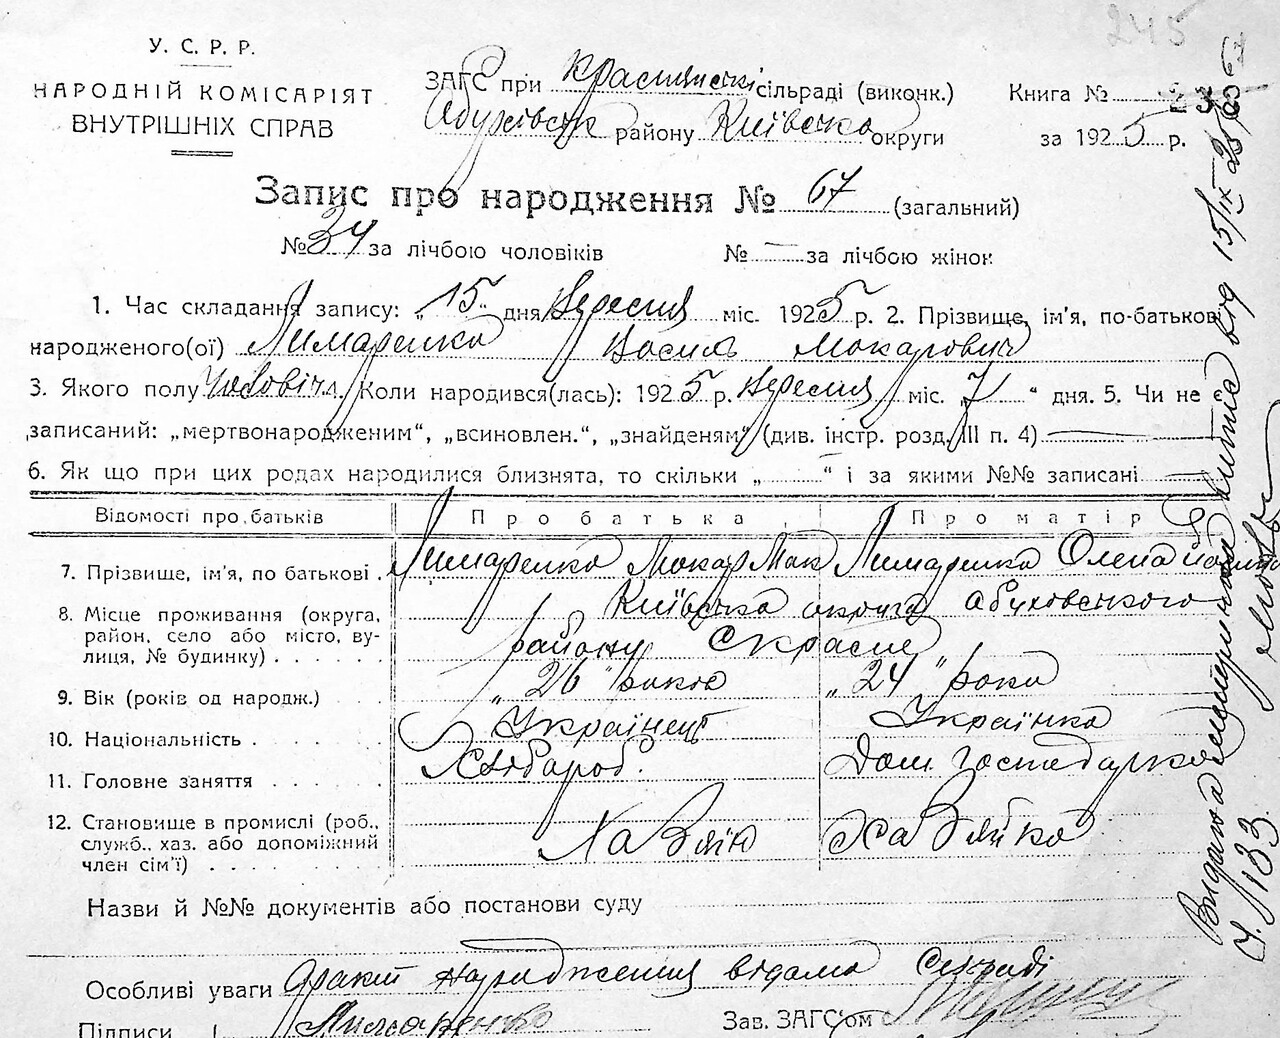 245
У. С. Р. Р.
НАРОДНІЙ КОМІСАРІЯТ
ВНУТРІШНІХ СПРАВ
ЗАГС при Краснянські сільраді (виконк.)
району Київсько округи
Книга №
за 1925 р.
67
Запис про народження № 67 (загальний)
№ 34 за лічбою чоловіків № — за лічбою жінок
1. Час складання запису: „15“ дня Вересня міс. 1925 р. 2. Прізвище, ім'я, по-батькові
народженого(ої) Лимаренко Василь Макарович
3. Якого полу Чоловіч. Коли народився(лась): 1925 р. Вересня міс. „7“ дня. 5. Чи не є
записаний: „мертвонародженим“, „всиновлен.“, „знайденям“ (див. інстр. розд. III п. 4)
6. Як що при цих родах народилися близнята, то скільки „ “ і за якими №№ записані
Відомості про батьків Про батька Про матір
7. Прізвище, ім'я, по батькові . Лимаренко Макар Мак Лимаренко Олена
8. Місце проживання (округа, Київська округа Обуховського
район, село або місто, ву- району С Красне
лиця, № будинку) . . . . . .
9. Вік (років од народж.) . . . „26“ років „24“ роки
10. Національність . . . . . . Українець Українка
11. Головне заняття . . . . . . Хлібароб. Дом господарка
12. Становище в промислі (роб., Хазяїн Хазяйка
служб., хаз. або допоміжний
член сім'ї) . . . . . . . . .
Назви й №№ документів або постанови суду
Особливі уваги народження відомо Сільраді
Підписи Лимаренко Зав. ЗАГС'ом
Видана від 15/IX 25
№ 183